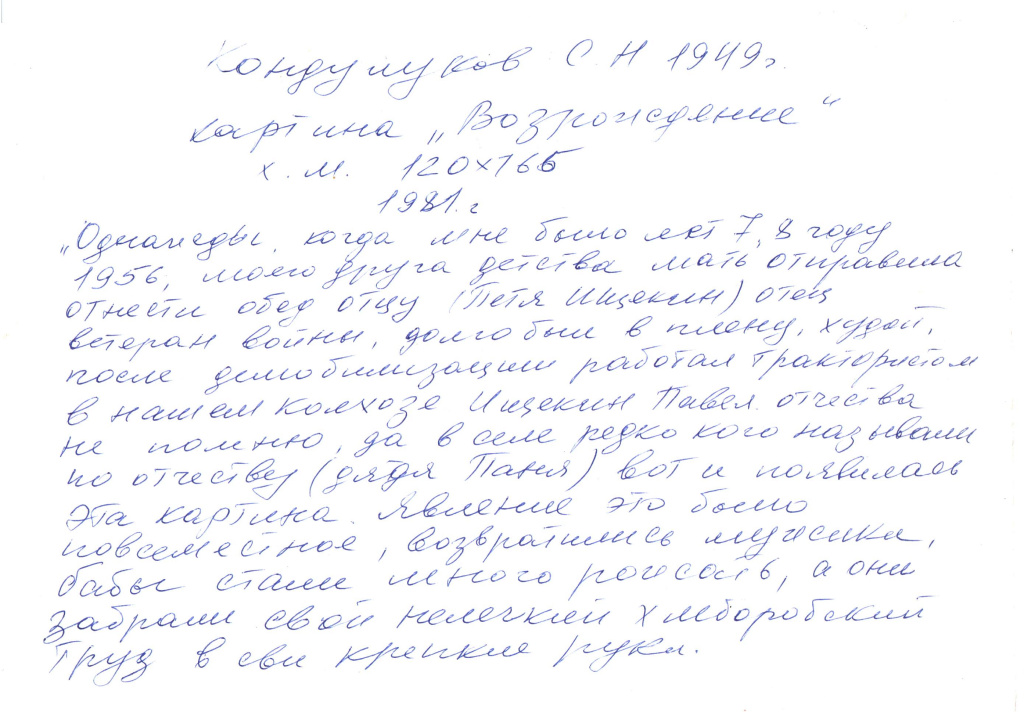 Кондулуков С.Н 1949г.
картина „Возрождение“
х.м. 120х166
1981.г
„Однажды, когда мне было лет 7, в году
1956, моего друга детства мать отправила
отнести обед отцу (Петя Ищекин) отец
ветеран войны, долго был в плену, худой,
после демобилизации работал трактористом
в нашем колхозе Ищекин Павел. отчества
не помню, да в селе редко кого называли
по отчеству (дядя Паня) вот и появилась
эта картина. Явление это было
повсеместное, возвратились мужики,
бабы стали много рожать, а они
забрали свой нелегкий хлеборобский
труд в сви крепкие руки.